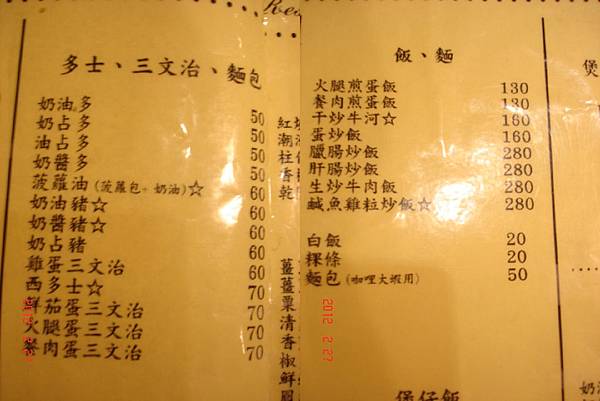 多士、三文治、麵包
奶油多 50
奶占多 50
油占多 50
奶醬多 50
菠蘿油 (菠蘿包+奶油)☆ 60
奶油豬☆ 60
奶醬豬☆ 60
奶占豬 60
雞蛋三文治 60
西多士☆ 70
鮮茄蛋三文治 70
火腿蛋三文治 70
餐肉蛋三文治 70
紅
潮
柱
香
乾
薑
薑
栗
清
香
椒
鮮
飯、麵
火腿煎蛋飯 130
餐肉煎蛋飯 130
干炒牛河☆ 160
蛋炒飯 160
臘腸炒飯 280
肝腸炒飯 280
生炒牛肉飯 280
鹹魚雞粒炒飯☆ 280
白飯 20
粿條 20
麵包 (咖哩大蝦用) 50
煲仔飯
煲
2012 2.27